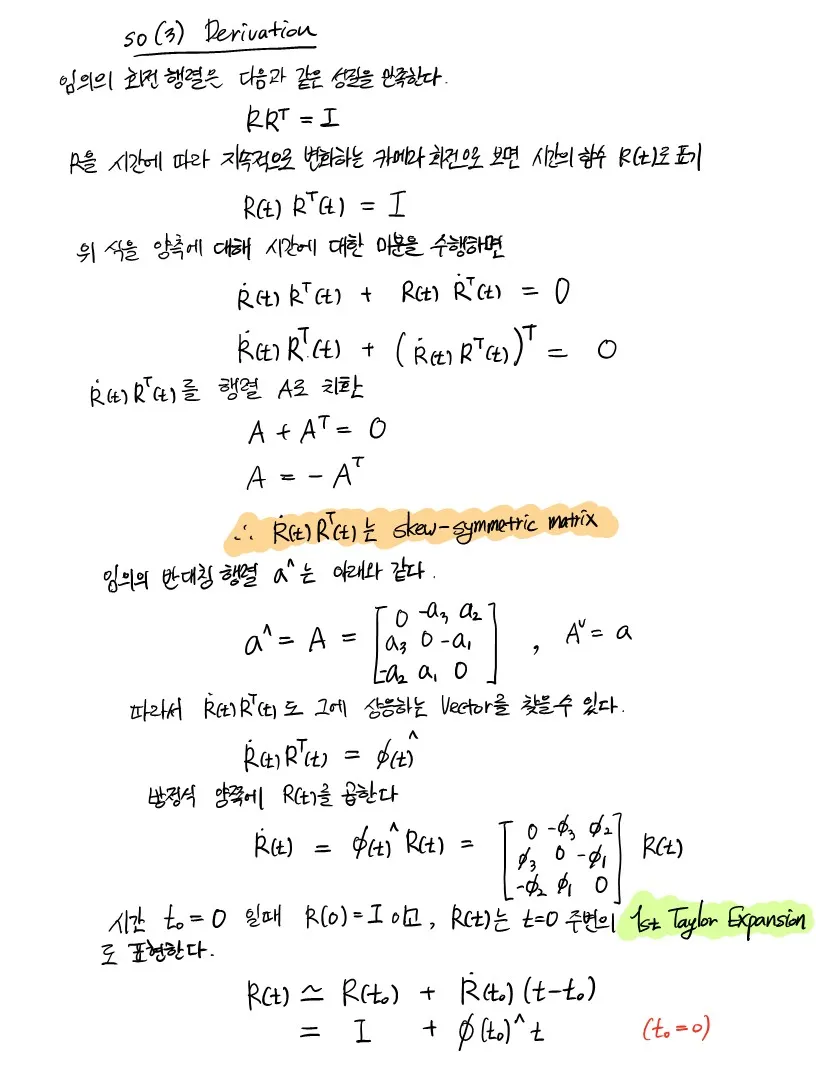 so(3) Derivation
임의의 회전 행렬은 다음과 같은 성질을 만족한다.
RRᵀ = I
R을 시간에 따라 지속적으로 변화하는 카메라 회전으로 보면 시간의 함수 R(t)로 표기
R(t) Rᵀ(t) = I
위 식을 양측에 대해 시간에 대한 미분을 수행하면
Ṙ(t) Rᵀ(t) + R(t) Ṙᵀ(t) = 0
Ṙ(t) Rᵀ(t) + (Ṙ(t) Rᵀ(t))ᵀ = 0
Ṙ(t) Rᵀ(t)를 행렬 A로 치환
A + Aᵀ = 0
A = - Aᵀ
∴ Ṙ(t) Rᵀ(t)는 skew-symmetric matrix
임의의 반대칭 행렬 a^는 아래와 같다.
a^ = A = [0 -a₃ a₂
a₃ 0 -a₁
-a₂ a₁ 0] , Aᵛ = a
따라서 Ṙ(t)Rᵀ(t)도 그에 상응하는 Vector를 찾을수 있다.
Ṙ(t)Rᵀ(t) = ϕ(t)^
방정식 양쪽에 R(t)를 곱한다
Ṙ(t) = ϕ(t)^ R(t) = [0 -ϕ₃ ϕ₂
ϕ₃ 0 -ϕ₁
-ϕ₂ ϕ₁ 0] R(t)
시간 t₀ = 0 일때 R(0) = I 이고, R(t)는 t=0 주변의 1st Taylor Expansion
도 표현한다.
R(t) ≃ R(t₀) + Ṙ(t₀) (t-t₀)
= I + ϕ(t₀)^ t (t₀=0)